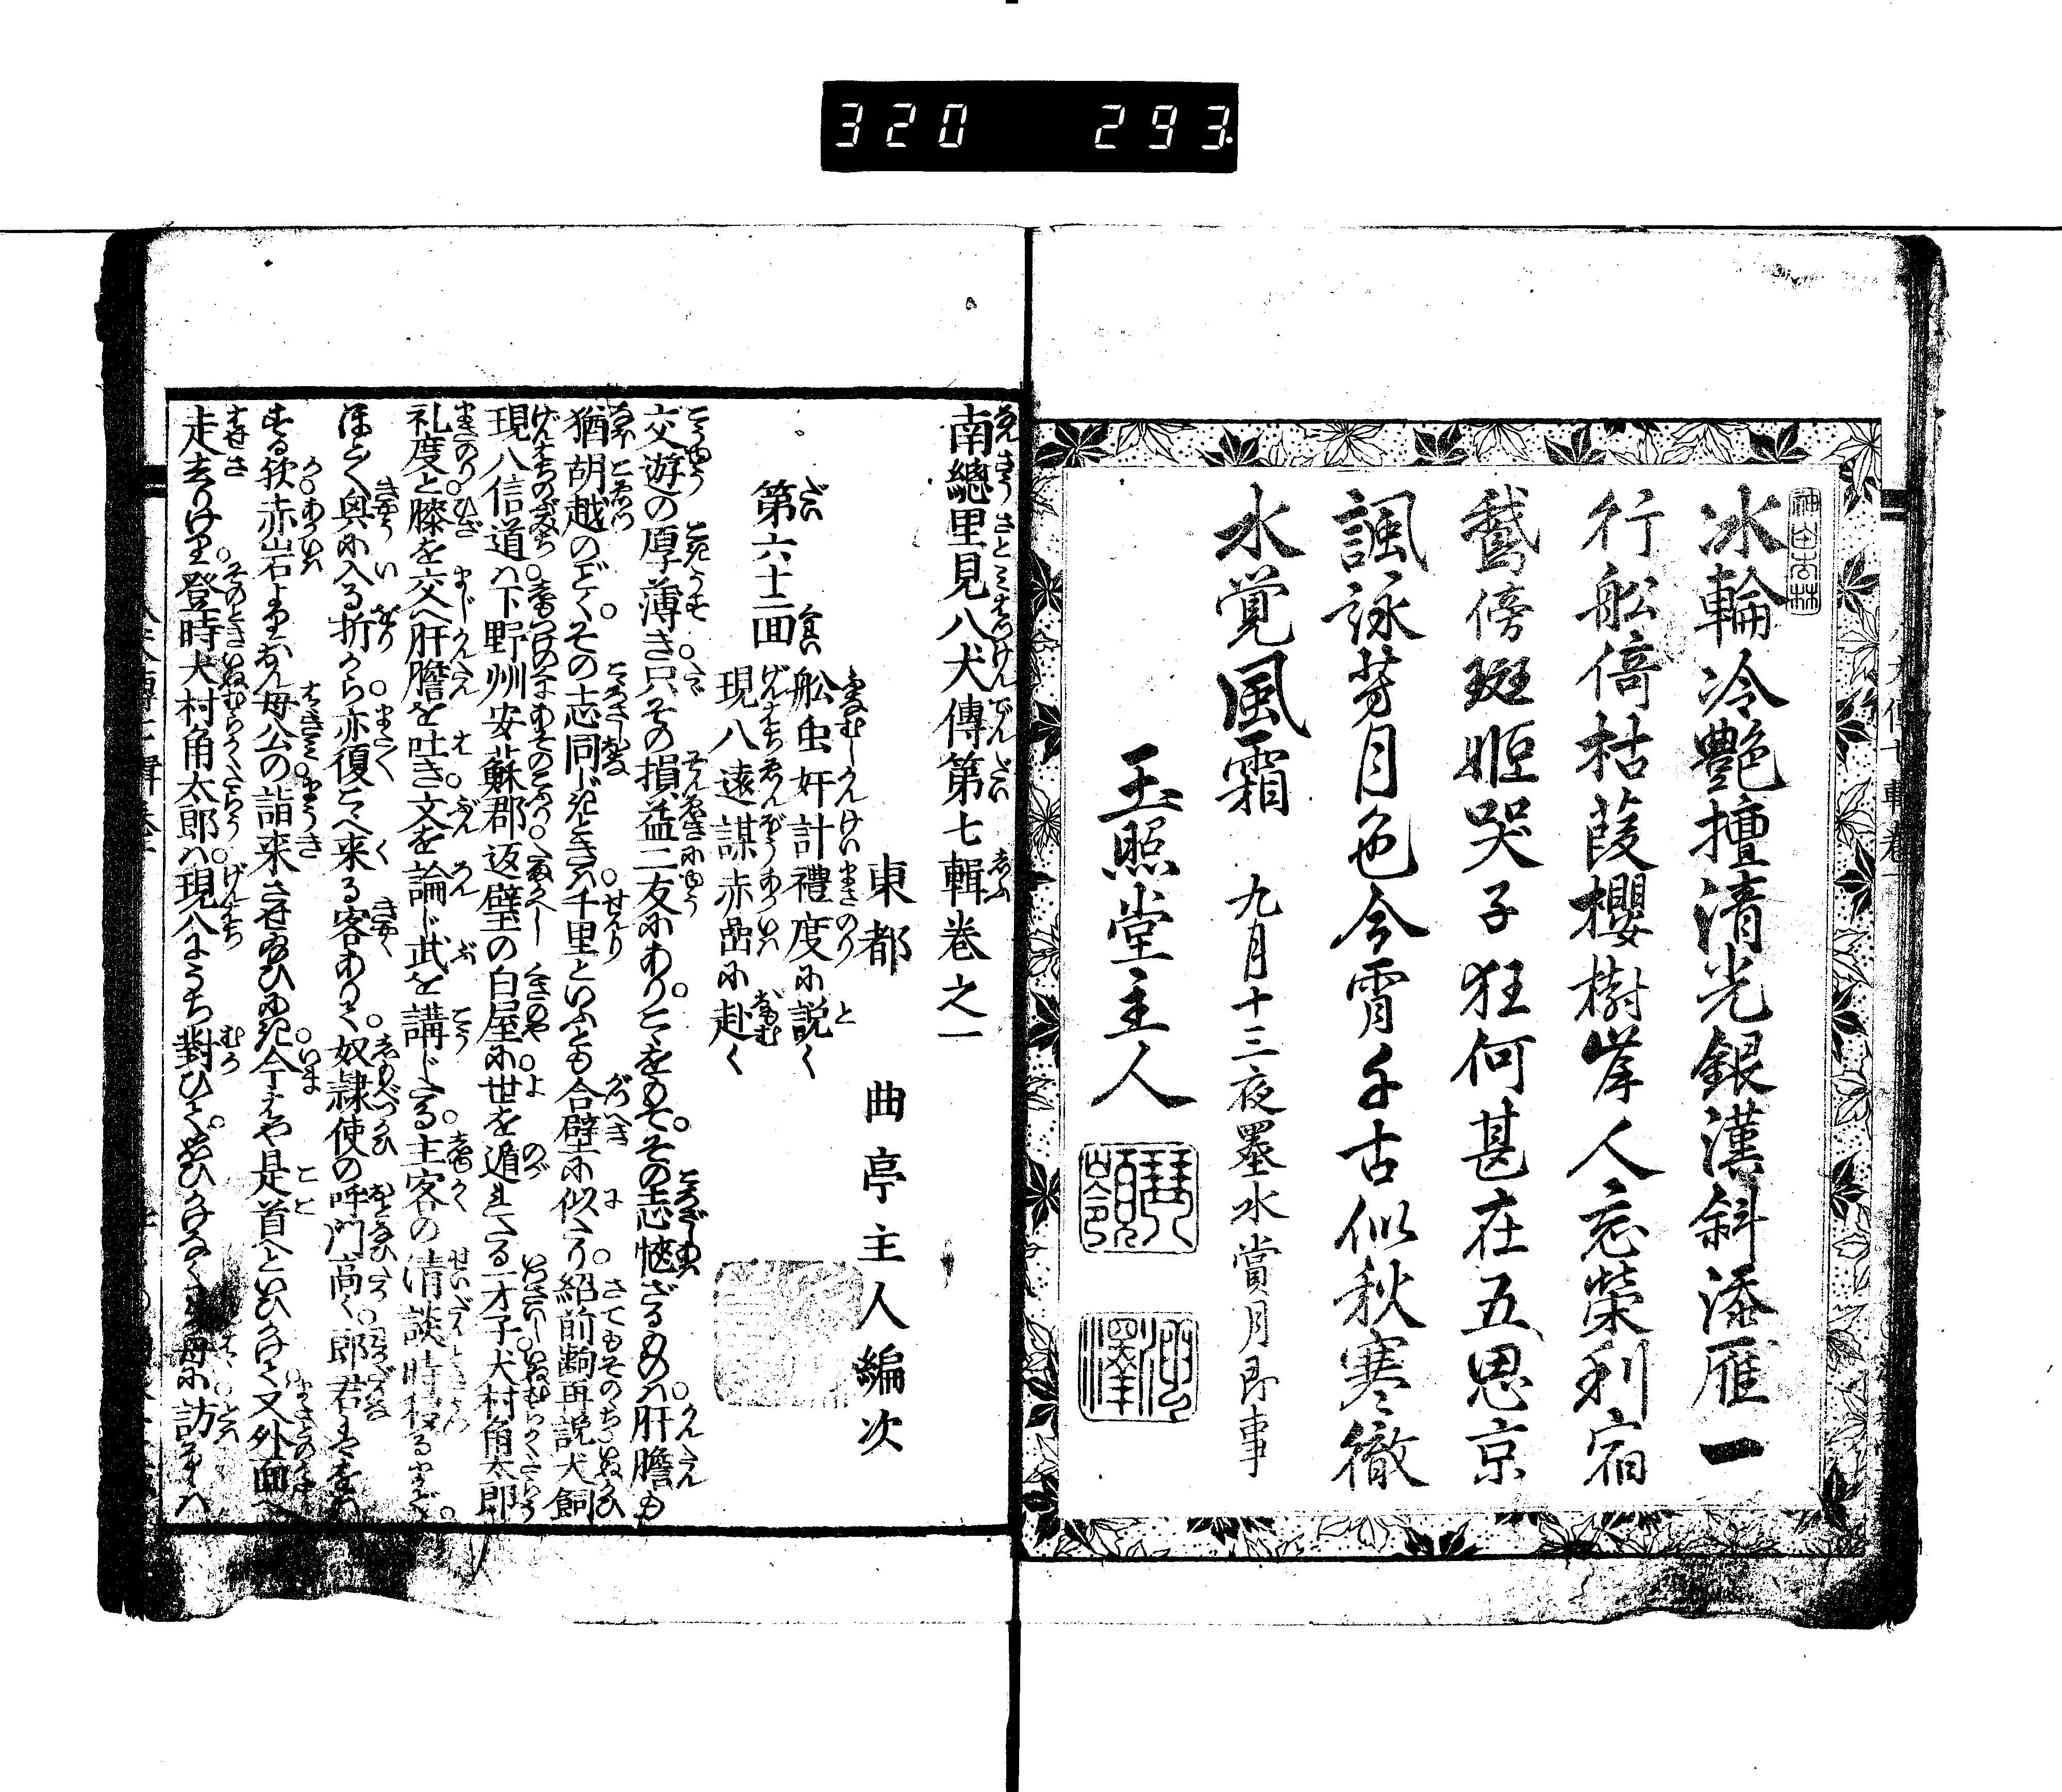 320 293
冰輪冷艷擅清光銀漢斜添雁一
行舩倚枯葭櫻樹岸人忘榮利宿
鵞傍斑姫哭子狂何甚在五思京
諷詠芳月色今霄千古似秋寒徹
水覚風霜 九月十三夜墨水賞月即事
玉照堂主人
琴嶺
南總里見八犬傳第七輯巻之一
東都 曲亭主人編次
第六十二囬 舩虫奸計禮度に説く
現八遠謀赤嵒に赴く
交遊の厚薄き只その損益二友にあり。こゝをもてその志愜ざるものハ肝膽も
猶胡越のごとくその志同じきときハ千里といふとも合壁に似たり紹前齣再説犬飼
現八信道ハ下野州安蘇郡返璧の白屋に世を遁れたる一才子犬村角太郎
礼度と膝を交へ肝膽を吐き文を論じ武を講じたる主客の清談時移るまでに
ほとく興に入る折から亦復こゝへ来る客ありて奴隷使の呼門高く郎君ハ
する欤赤岩よりおん母公の詣来させ給ひにき今はや是首へといひかけて又外面へ
走去りけり登時犬村角太郎ハ現八にうち對ひて思ひかけなく母に訪